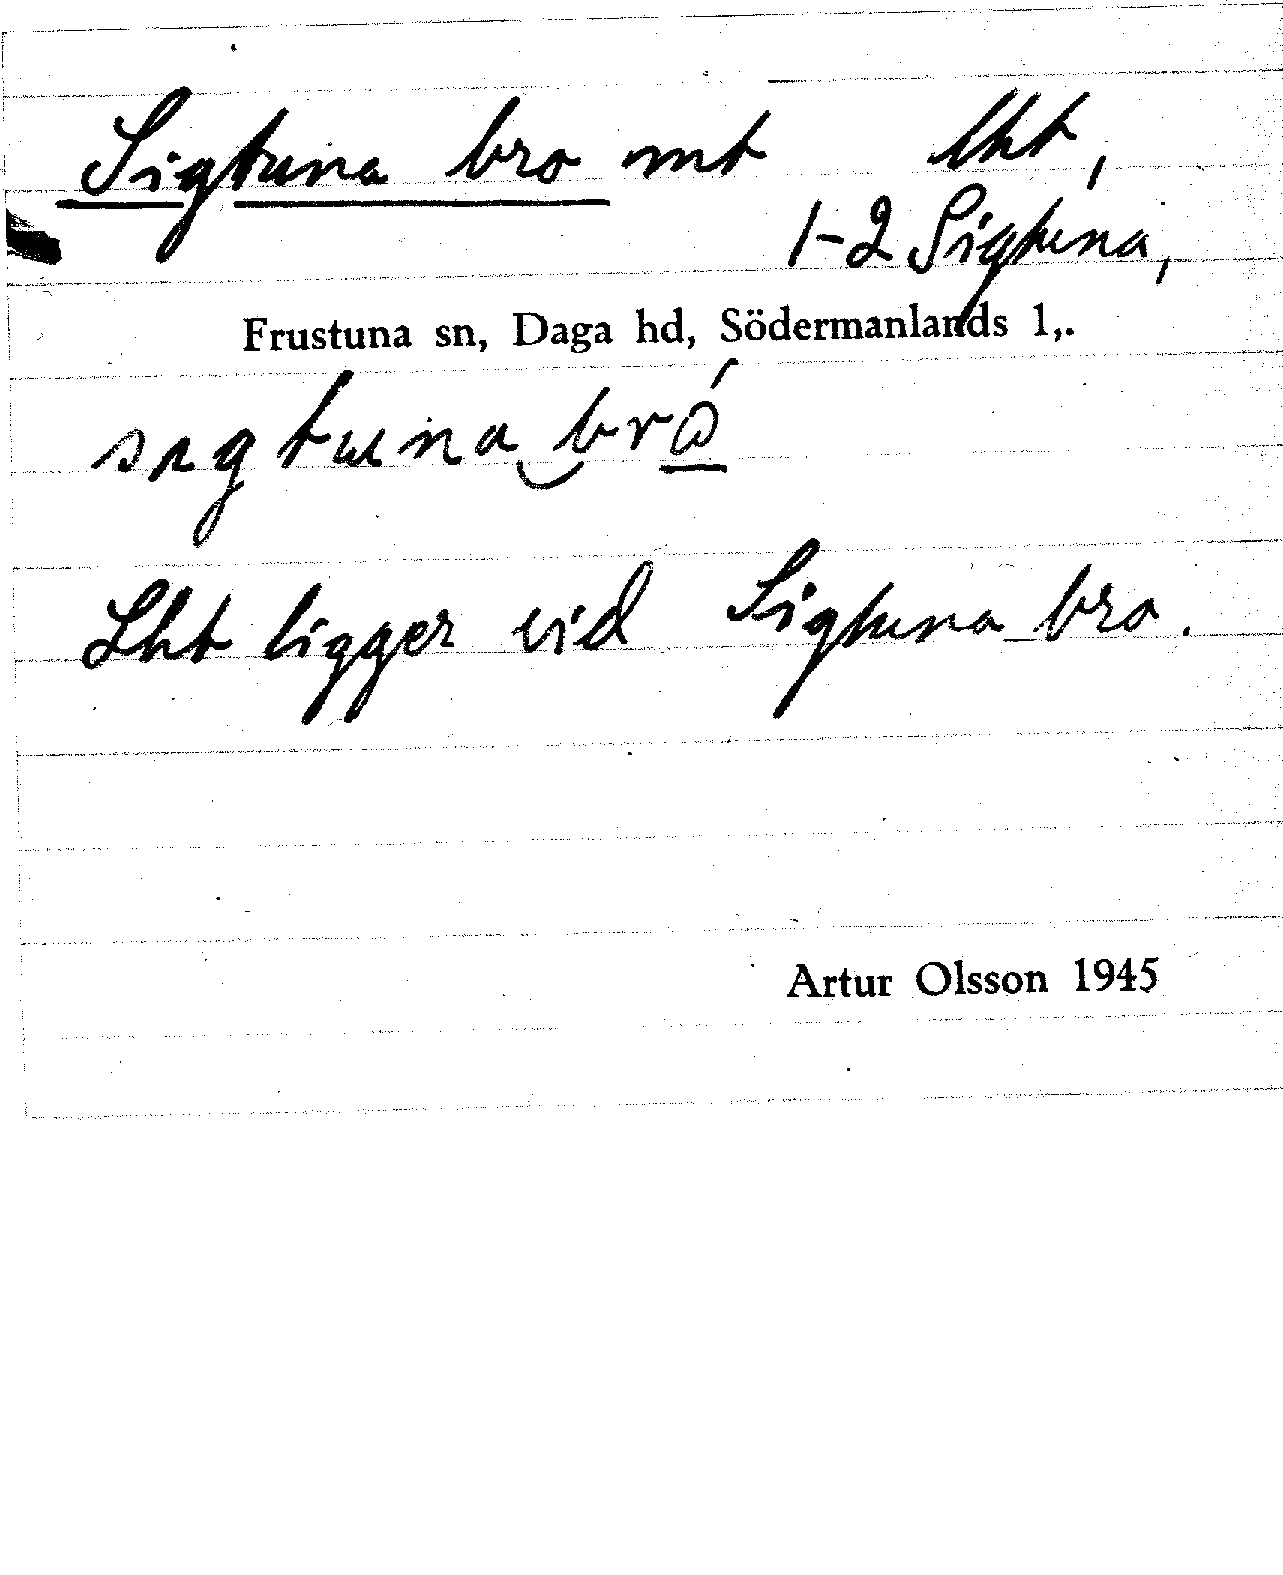 Sigtuna bro mt lht,
1-2 Sigtuna,
Frustuna sn, Daga hd, Södermanlands l,.
Lht ligger vid Sigtuna bro.
Artur Olsson 1945